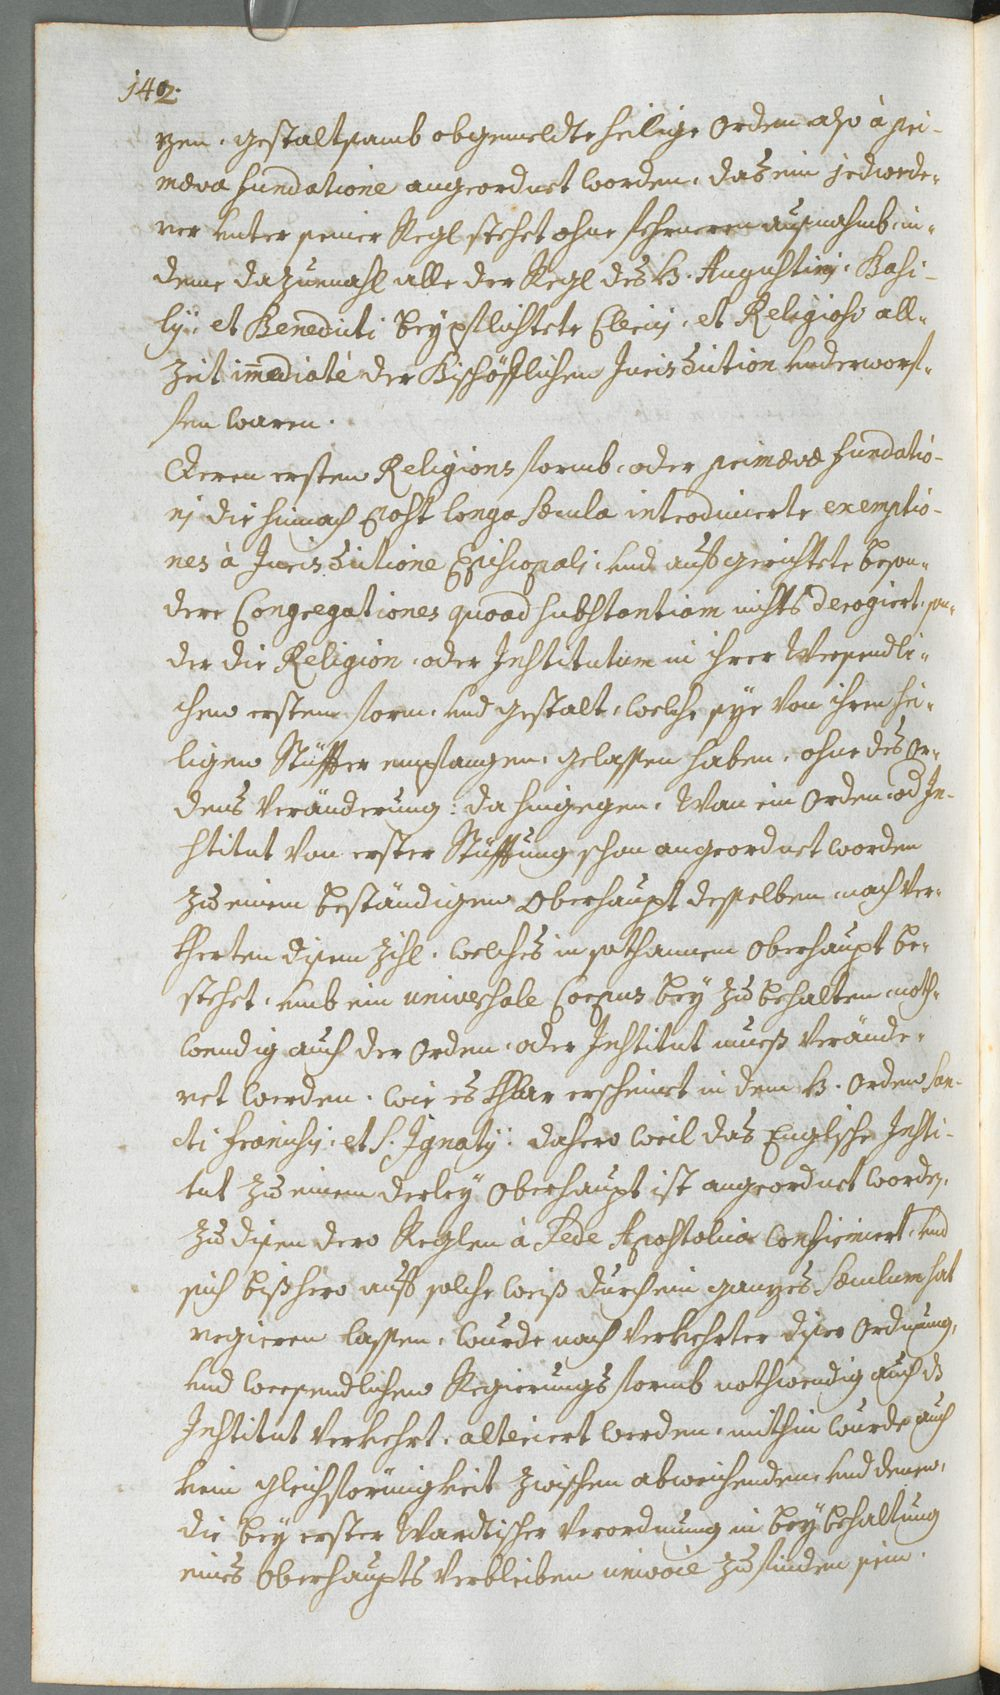 142.
zen. gestaltsamb obgemeldte heilige Orden also à pri-
mæva fundatione angeordnet worden, das ein jedwede-
rer unter seiner Regl stehet ohne fehrneren ausnahmb, in-
deme dazumahl alle der Regl des H. Augustini, Basi-
lij, et Benedicti beypflichtete Clerici, et Religiosi all-
zeit immediatè der Bischöfflichen Jurisdiction underworf-
fen waren.
Deren ersten Religions formb, oder primævæ fundatio-
ni die hinnach post longa sæcula introducierte exemptio-
nes à Jurisdictione Episcopali, und aufgerichtete beson-
dere Congregationes quoad substantiam nichts derogiert, son-
der die Religion, oder Institutum in ihrer Wesendli-
chen ersten form, und gestalt, welche sye von ihren hei-
ligen Stüffter empfangen, gelassen haben, ohne des Or-
dens Veränderung: da hingegen, Wan ein Orden, od In-
stitut von erster Stüfftung schon angeordnet worden
zu einem beständigen Oberhaupt desselben, nach ver-
kherten disem Zihl, welches in sothannem Oberhaupt be-
stehet, umb ein universale Corpus bey zu behalten, noth-
wendig auch der Orden, oder Institut muess verände-
ret werden, wie es khlar erscheinet in dem H. Orden San-
cti Francisci, et S. Ignatij: dahero weil das Englische Insti-
tut zu einem derley Oberhaupt ist angeordnet worden,
zu disen dero Reglen à Sede Apostolica confirmiert, und
sich bisshero auff solche weiss durch ein ganzes Sæculum hat
regieren lassen, wurde nach verkehrter diser Ordnung,
und weesendlichen Regierungs formb nothwendig auch ds
Institut verkehrt, alteriert werden, mithin wurde auch
kein gleichförmigkeit zwischen abweichenden, und denen,
die bey erster Wardischer Verordnung in beybehaltung
eines Oberhaupts verbleiben univoce zu finden sein.